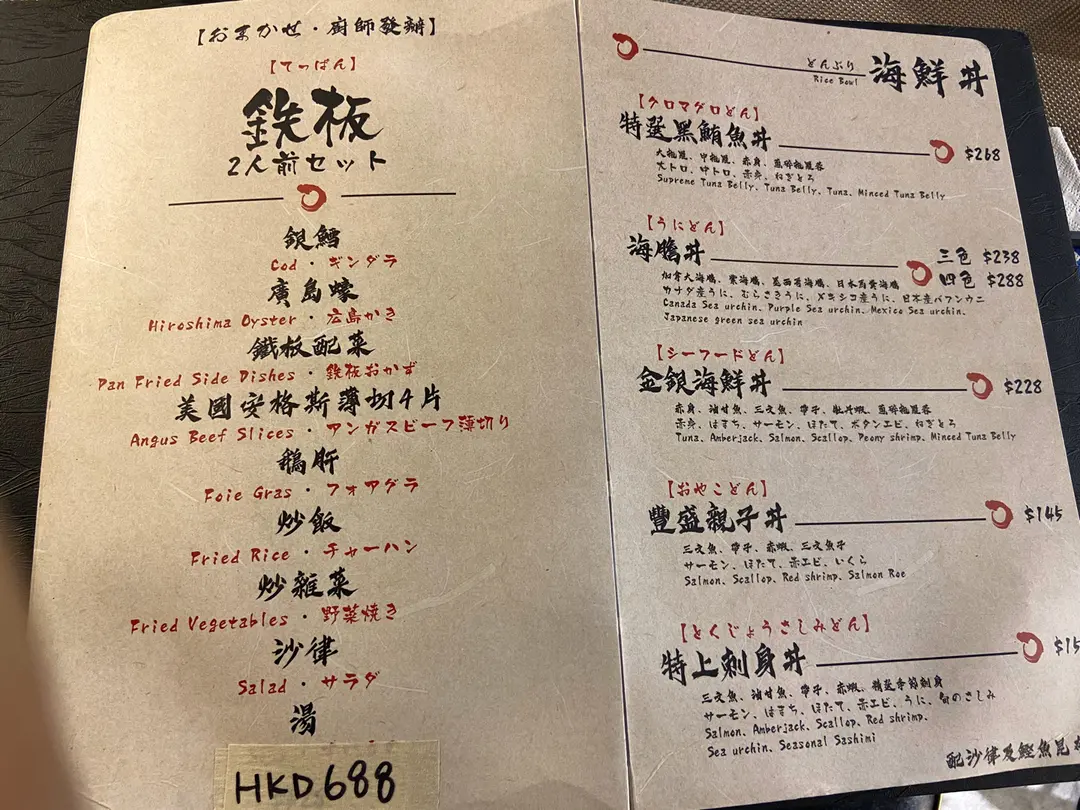 【おまかせ・廚師發辦】
【てっぱん】
鉄板
2人前セット
銀鱈
Cod・ギンダラ
廣島蠔
Hiroshima Oyster・広島かき
鐵板配菜
Pan Fried Side Dishes・鉄板おかず
美國安格斯薄切4片
Angus Beef Slices・アンガスビーフ薄切り
鵝肝
Foie Gras・フォアグラ
炒飯
Fried Rice・チャーハン
炒雜菜
Fried Vegetables・野菜焼き
沙律
Salad・サラダ
湯
HKD688
どんぶり
Rice Bowl
海鮮丼
【クロマグロどん】
特選黑鮪魚丼 $268
大拖羅、中拖羅、赤身、蔥碎拖羅蓉
大トロ、中トロ、赤身、ねぎとろ
Supreme Tuna Belly, Tuna Belly, Tuna, Minced Tuna Belly
【うにどん】
海膽丼
三色 $238
四色 $288
加拿大海膽、紫海膽、墨西哥海膽、日本馬糞海膽
カナダ産うに、むらさきうに、メキシコ産うに、日本産バフンウニ
Canada Sea urchin, Purple Sea urchin, Mexico Sea urchin,
Japanese green sea urchin
【シーフードどん】
金銀海鮮丼 $228
赤身、油甘魚、三文魚、帶子、牡丹蝦、蔥碎拖羅蓉
赤身、はまち、サーモン、ほたて、ボタンエビ、ねぎとろ
Tuna, Amberjack, Salmon, Scallop, Peony shrimp, Minced Tuna Belly
【おやこどん】
豐盛親子丼 $145
三文魚、帶子、赤蝦、三文魚子
サーモン、ほたて、赤エビ、いくら
Salmon, Scallop, Red shrimp, Salmon Roe
【とくじょうさしみどん】
特上刺身丼 $15
三文魚、油甘魚、帶子、赤蝦、精選季節刺身
サーモン、はまち、ほたて、赤エビ、うに、旬のさしみ
Salmon, Amberjack, Scallop, Red shrimp,
Sea urchin, Seasonal Sashimi
配沙律及鰹魚昆